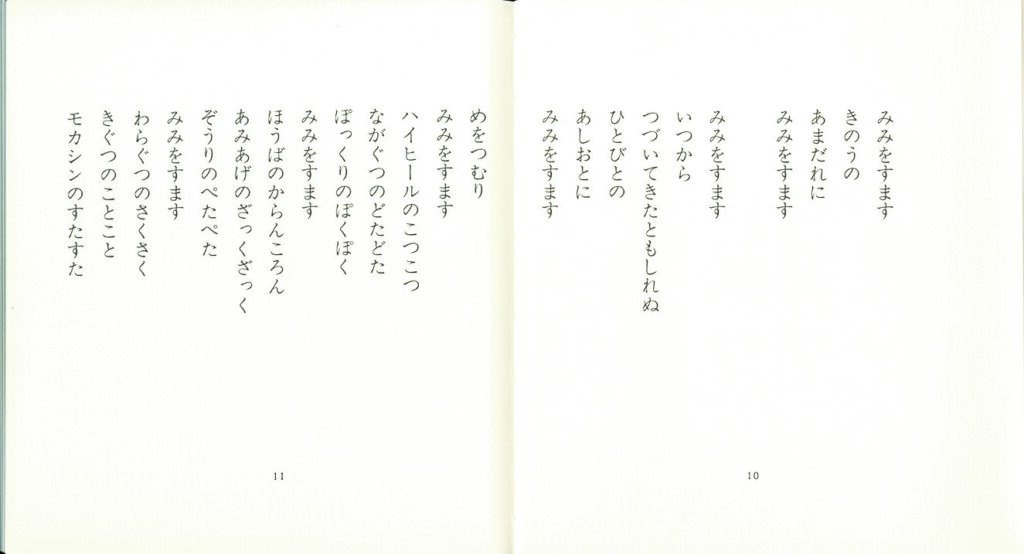 みみをすます
きのうの
あまだれに
みみをすます
みみをすます
いつから
つづいてきたともしれぬ
ひとびとの
あしおとに
みみをすます
10
めをつむり
みみをすます
ハイヒールのこつこつ
ながぐつのどたどた
ぽっくりのぽくぽく
みみをすます
ほうばのからんころん
あみあげのざっくざっく
ぞうりのぺたぺた
みみをすます
わらぐつのさくさく
きぐつのことこと
モカシンのすたすた
11